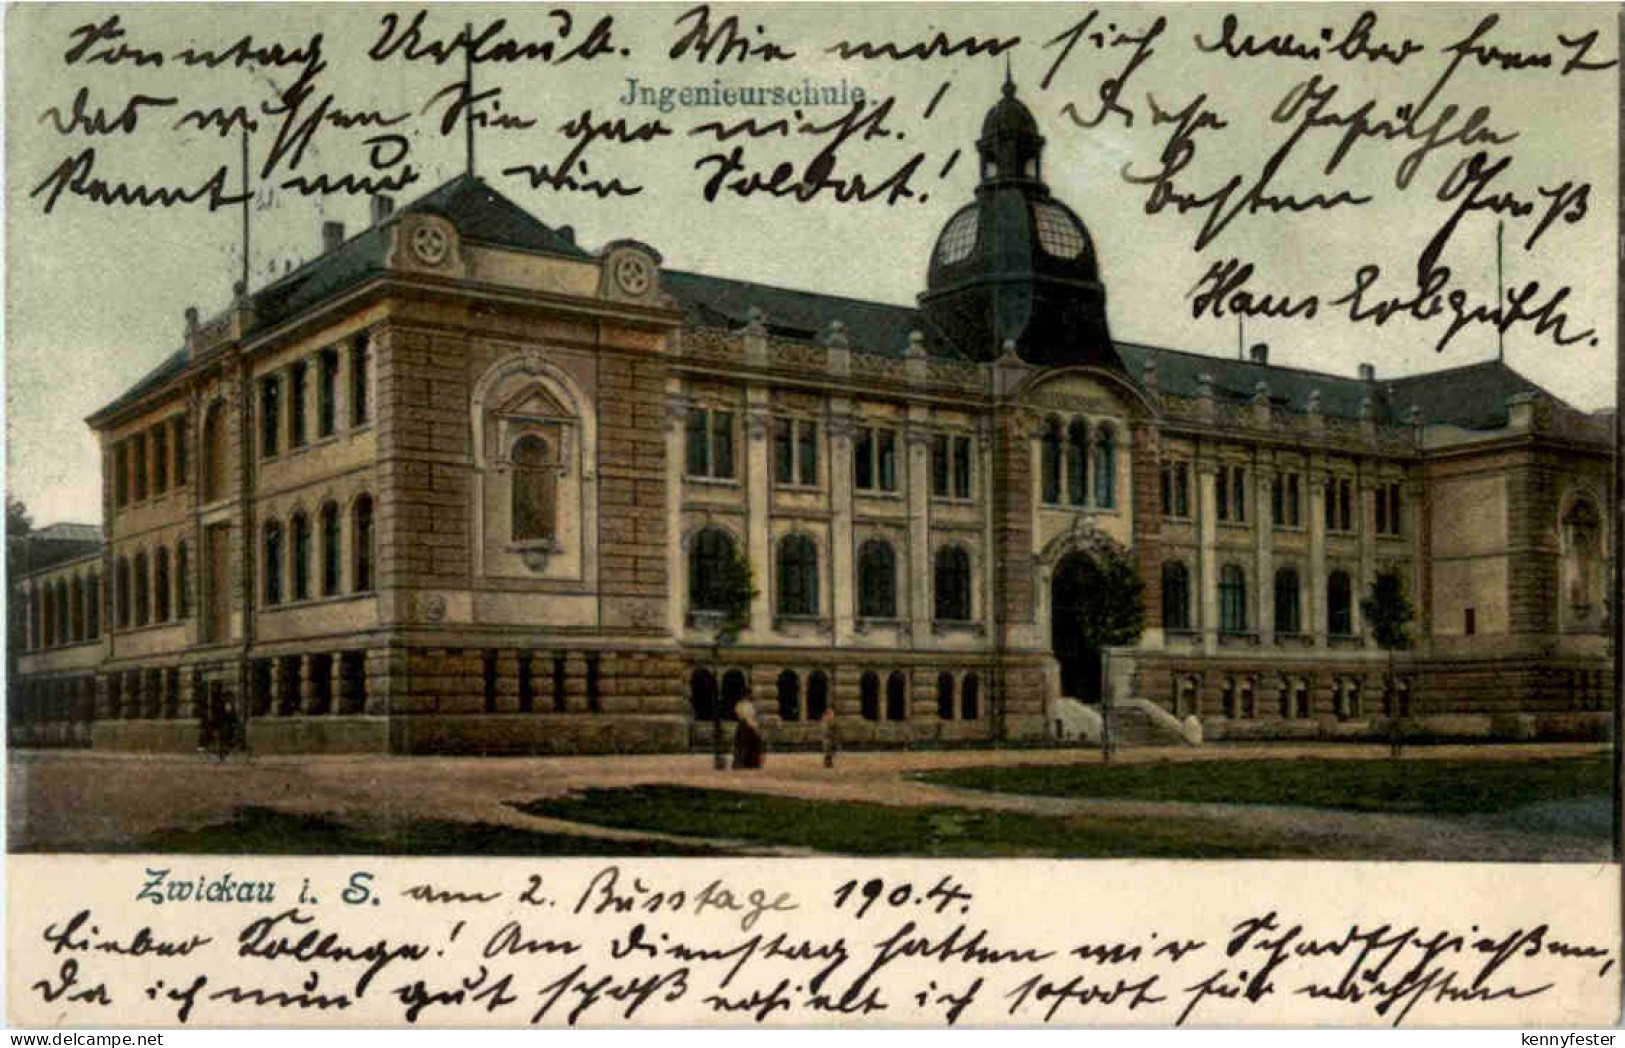 Sonntag Urlaub. Wie man sich darüber freut
das wissen Sie gar nicht! Diese Gefühle
kennt nur ein Soldat! besten Gruß
Hans Erbguth.
Jngenieurschule.
Zwickau i. S. am 2. Busstage 1904.
Lieber Kollege! Am Dienstag hatten wir Scharfschießen,
Da ich nun gut schoß erhielt ich sofort für nächsten
delcampe.net
kennyfester